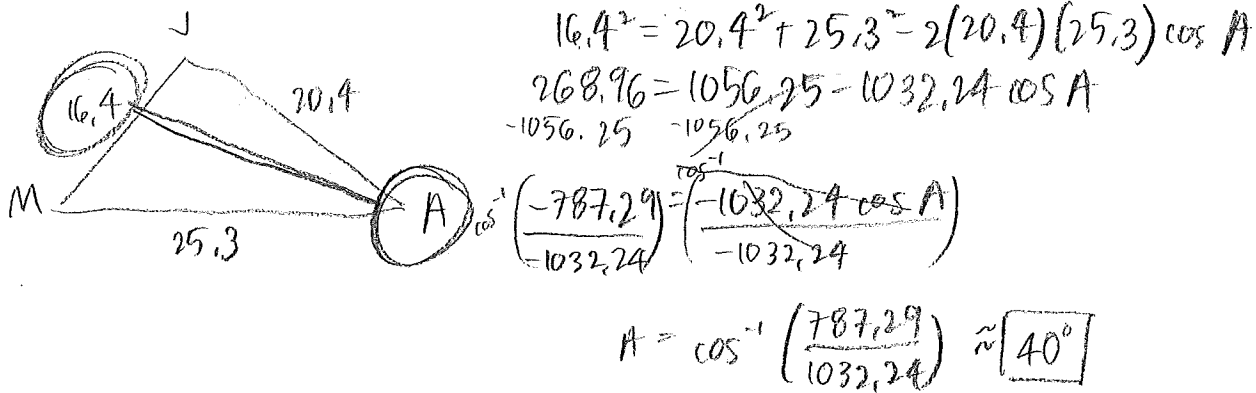 J
16.4
20.4
M
25.3
A
16.4² = 20.4² + 25.3² - 2(20.4)(25.3) cos A
268.96 = 1056.25 - 1032.24 cos A
-1056.25 -1056.25
cos⁻¹
cos⁻¹ (-787.29 / -1032.24) = (-1032.24 cos A / -1032.24)
A = cos⁻¹ (787.29 / 1032.24) ≈ 40°